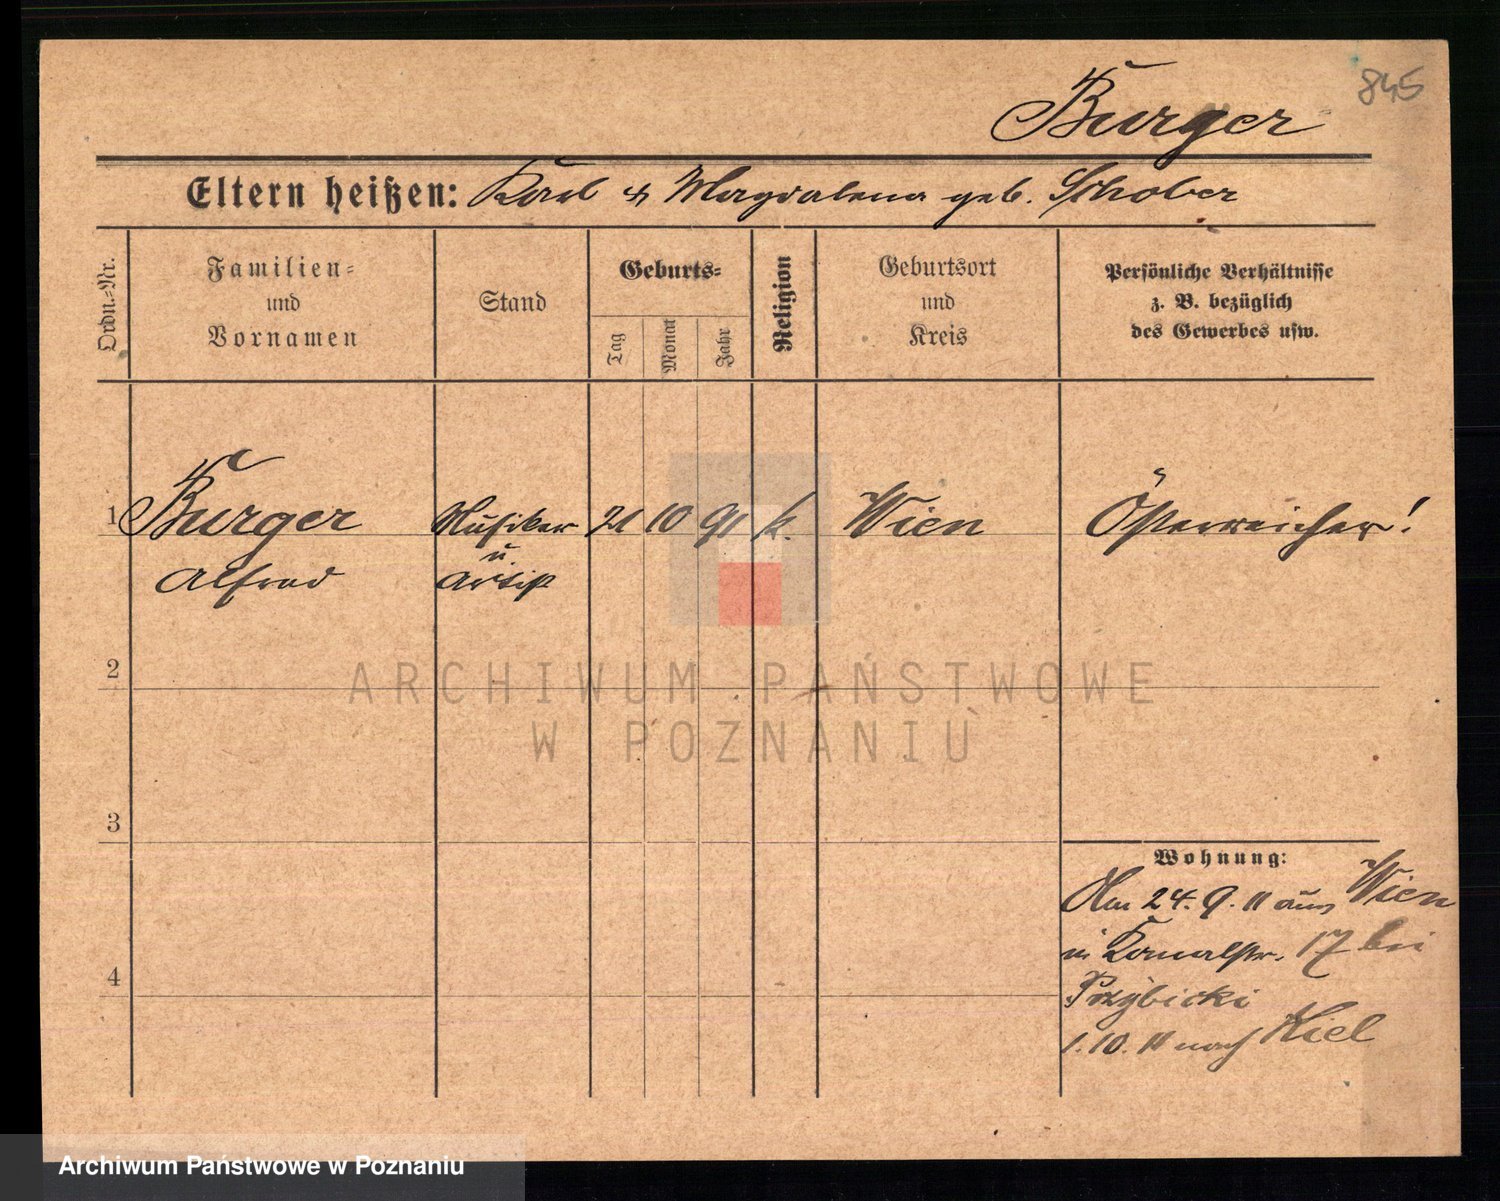 845
Burger
Eltern heißen: Karl & Magdalena geb. Schober
Ordn.-Nr.
Familien-
und
Vornamen
Stand
Geburts-
Tag
Monat
Jahr
Religion
Geburtsort
und
Kreis
Persönliche Verhältnisse
z. B. bezüglich
des Gewerbes usw.
1 Burger Musiker 21 10 91 k. Wien Österreicher!
u.
Alfred Artist
2
3
4
Wohnung:
Am 24. 9. 11 aus Wien
in Kanalstr. 17 bei
Przybicki
1. 10. 11 nach Kiel
ARCHIWUM PAŃSTWOWE
W POZNANIU
Archiwum Państwowe w Poznaniu